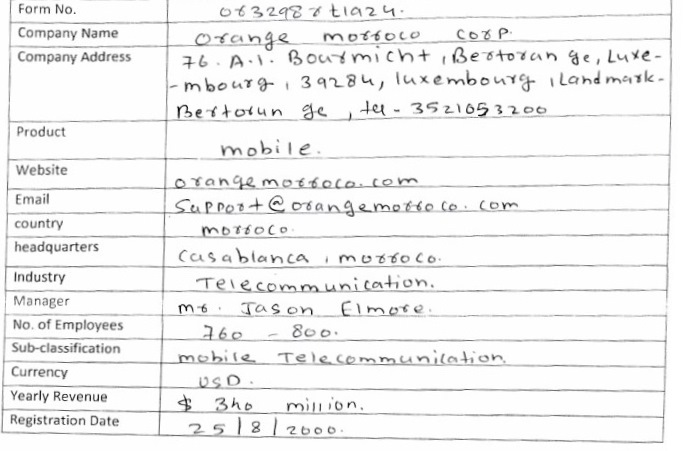 Form No. 063298rt1924.
Company Name Orange morroco corp.
Company Address 76. A.I. Bourmicht, Bertoran ge, Luxe-
-mbourg, 39284, luxembourg, Landmark-
Bertorun ge, tel - 3521053200
Product mobile.
Website orangemorroco.com
Email Support@orangemorroco.com
country morroco.
headquarters Casablanca, morroco.
Industry Telecommunication.
Manager mr. Jason Elmore.
No. of Employees 760 - 800.
Sub-classification mobile Telecommunication.
Currency USD.
Yearly Revenue $ 340 million.
Registration Date 25|8|2000.